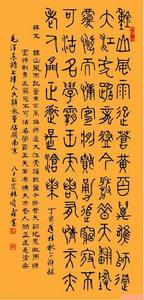 鐘山風雨起蒼黃百萬雄師過
大江虎踞龍盤今勝昔天翻地
覆慨而慷宜將剩勇追窮寇不
可沽名學霸王天若有情天亦
老人間正道是滄桑
釋文 鐘山風雨起蒼黃百萬雄師過大江虎踞龍盤今勝昔天翻地覆慨而慷
宜將剩勇追窮寇不可沽名學霸王天若有情天亦老人間正道是滄桑
毛澤東七律人民解放軍佔領南京